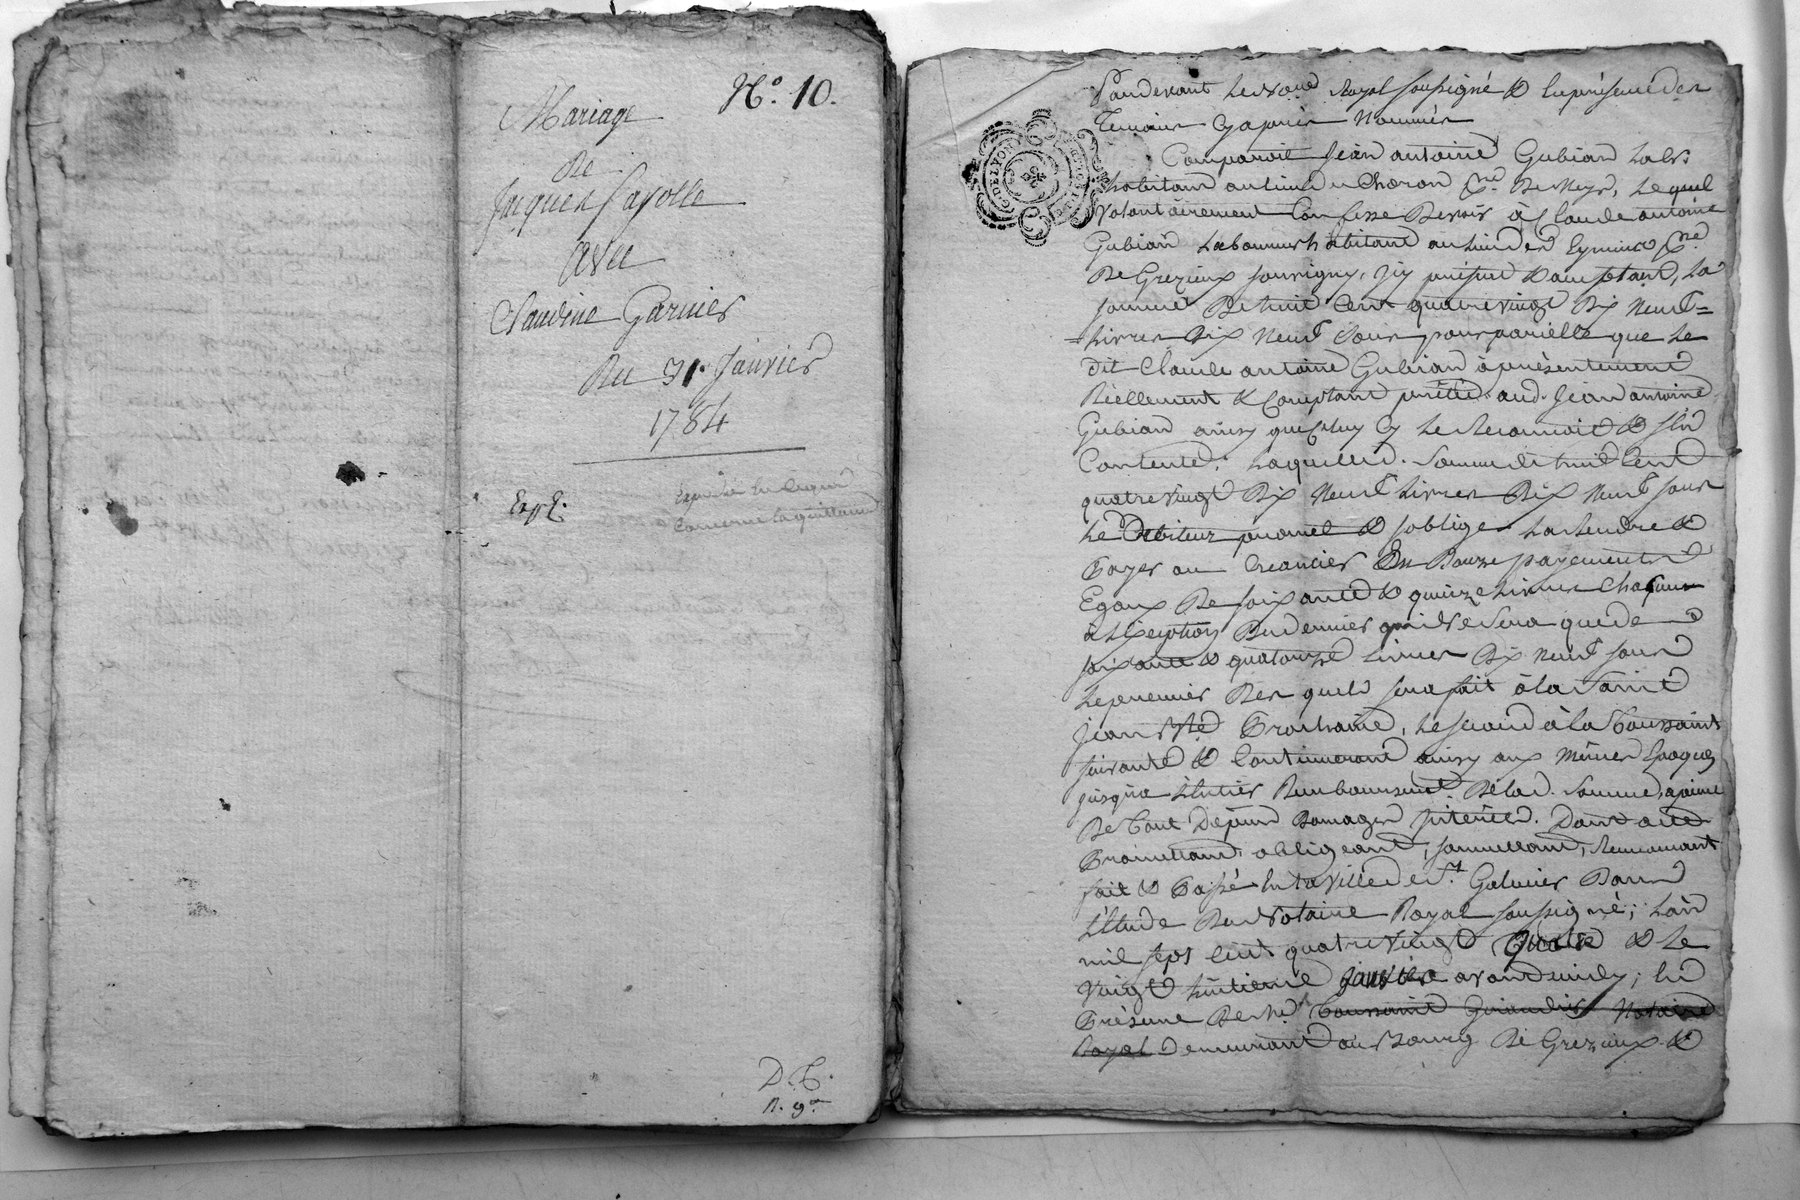 N.º 10.
Mariage
De
Jacques Fayolle
avec
Claudine Garnier
Du 31. Janvier
1784
Exp.
Expédié en Cugni
Concerne la quittance
D. C.
n. 9.
G. DE LYON
Pardevant le No.re Royal soussigné & en présence des
Temoins Cy après Nommés
Comparoit Jean antoine Gubian Labr.
habitant au lieu de Choron P.sse De Meys, Lequel
Volontairement Confesse Devoir à Claude antoine
Gubian Laboureur habitant au lieu de P.sse
De Grezieux Souvigny, icy présent & acceptant, La
somme De huit Cent quatre vingt Dix Neuf
Livres Dix Neuf Sous pour pareille que Le
dit Claude antoine Gubian à présentement
Réellement & Comptant prêtté aud. Jean antoine
Gubian ainsy que Celuy Cy Le Reconnoit & s'en
Contente. Laquelle d. Somme de huit Cent
quatre vingt Dix Neuf Livres Dix Neuf sous
Le Debiteur promet & s'oblige La Rendre &
Payer au Creancier En Douze payements
Egaux De soixante & quinze Livres Chaqu'un
à l'Exception Du dernier qui ne sera que de
soixante & quatorze Livres Dix Neuf sous
Le premier Des quels sera fait à la Saint
Jean B.te Prochaine, Le second à la Toussaint
suivante & Continueront ainsy aux Mêmes Epoques
jusqu'a L'Entier Remboursem.t De lad. Somme, a peine
De Tout Dépens Domages Intérêts. Dont acte
Promettant, obligeant, soumettant, Renonçant
fait & Passé En la Ville de S.t Galmier Dans
L'Etude Du Notaire Royal soussigné; L'an
mil sept cent quatre vingt quatre & Le
vingt huitieme janvier avant midy; En
Présence De M.e Toussaint Giraudier Notaire
Royal Demeurant au Bourg De Grezieux &